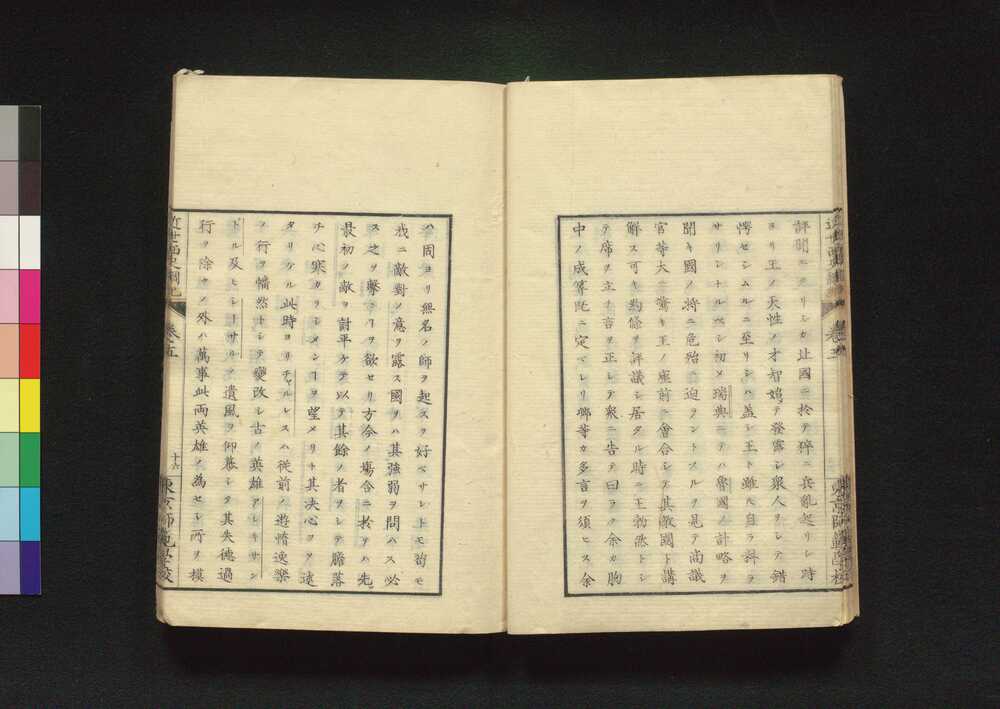 評聞ニアリシカ此國ニ於テ猝ニ兵亂起リシ時
ヨリ王ノ天性ノ才智始テ發露シ衆人ヲシテ錯
愕セシムルニ至リシハ蓋シ王ト雖モ自ラ料ラ
サリシナルベシ初メ瑞典ニテハ魯國ノ計略ヲ
聞キ國ノ將ニ危殆ニ迫ラントスルヲ見テ商議
官等大ニ驚キ王ノ座前ニ會合シ其敵國ト講
解ス可キ約條ヲ評議シ居タル時ニ王勃然トシ
テ席ヲ立チ言ヲ正シテ衆ニ告テ曰ラク余カ胸
中ノ成算既ニ定マレリ卿等カ多言ヲ須ヒス余
ハ固ヨリ無名ノ師ヲ起スヲ好マサレトモ苟モ
我ニ敵對ノ意ヲ露ス國ヲハ其強弱ヲ問ハス必
ス之ヲ擊ツヿヲ欲セリ方今ノ塲合ニ於テハ先
最初ノ敵ヲ討平ケテ以テ其餘ノ者ヲシテ膽落
チ心寒カラシメンヿヲ望メリト其決心ヲ速
タリケル此時ヨリチャルレスハ從前ノ遊惰逸樂
ノ行ヲ幡然トシテ變改シ古ノ英雄アレキサン
ドル及ヒシーサルノ遺風ヲ仰慕シタ其失德過
行ヲ除クノ外ハ萬事此両英雄ノ為セシ所ヲ模
近世西史綱紀
卷之五
十六
東京師範學校